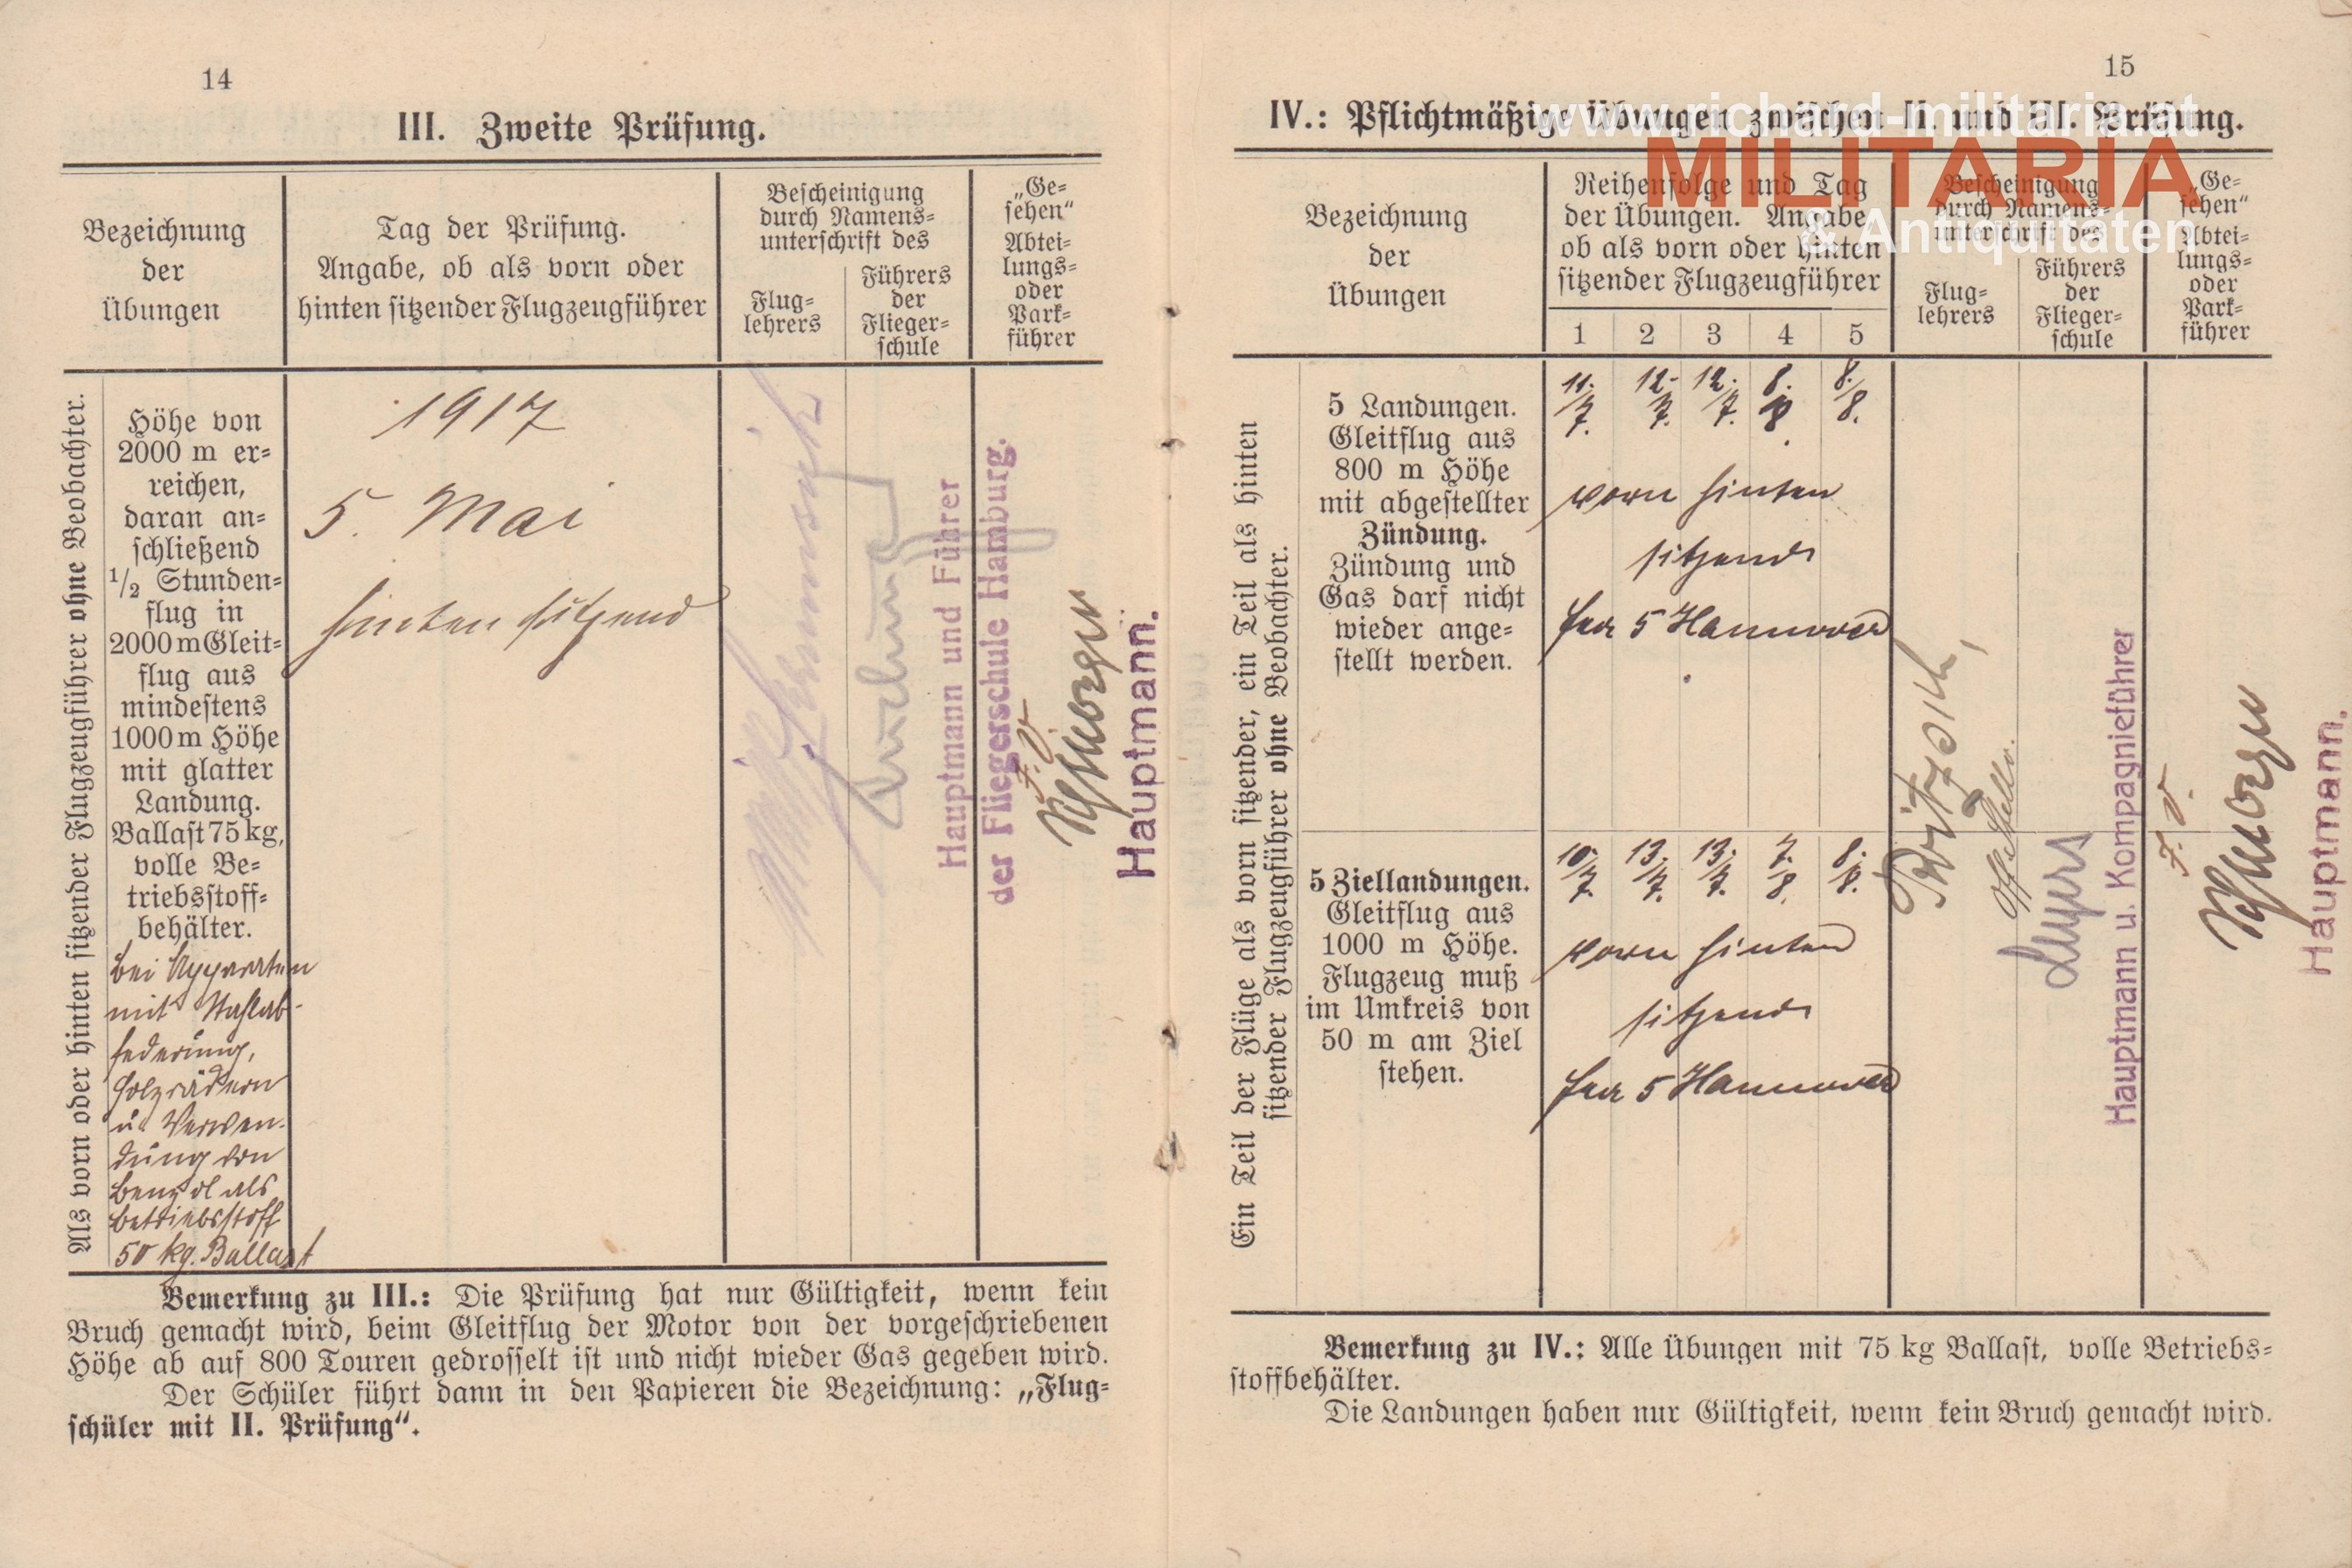 14
III. Zweite Prüfung.
Bezeichnung
der
Übungen
Tag der Prüfung.
Angabe, ob als vorn oder
hinten sitzender Flugzeugführer
Bescheinigung
durch Namens-
unterschrift des
Flug-
lehrers
Führers
der
Flieger-
schule
„Ge-
sehen“
Abtei-
lungs-
oder
Park-
führer
Als vorn oder hinten sitzender Flugzeugführer ohne Beobachter.
Höhe von
2000 m er-
reichen,
daran an-
schließend
1/2 Stunden-
flug in
2000 m Gleit-
flug aus
mindestens
1000 m Höhe
mit glatter
Landung.
Ballast 75 kg,
volle Be-
triebsstoff-
behälter.
bei Apparaten
mit Stahlab-
federung,
Holzrädern
u. Verwen-
dung von
Benzol als
Betriebsstoff
50 kg. Ballast
1917
5. Mai
hinten sitzend
Hauptmann und Führer
der Fliegerschule Hamburg.
F. d.
Hauptmann.
Bemerkung zu III.: Die Prüfung hat nur Gültigkeit, wenn kein
Bruch gemacht wird, beim Gleitflug der Motor von der vorgeschriebenen
Höhe ab auf 800 Touren gedrosselt ist und nicht wieder Gas gegeben wird.
Der Schüler führt dann in den Papieren die Bezeichnung: „Flug-
schüler mit II. Prüfung“.
15
IV.: Pflichtmäßige Übungen zwischen II. und III. Prüfung.
www.richard-militaria.at
MILITARIA
& Antiquitäten
Bezeichnung
der
Übungen
Reihenfolge und Tag
der Übungen. Angabe
ob als vorn oder hinten
sitzender Flugzeugführer
1 2 3 4 5
Bescheinigung
durch Namens-
unterschrift des
Flug-
lehrers
Führers
der
Flieger-
schule
„Ge-
sehen“
Abtei-
lungs-
oder
Park-
führer
Ein Teil der Flüge als vorn sitzender, ein Teil als hinten
sitzender Flugzeugführer ohne Beobachter.
5 Landungen.
Gleitflug aus
800 m Höhe
mit abgestellter
Zündung.
Zündung und
Gas darf nicht
wieder ange-
stellt werden.
11./7. 12./7. 12./7. 8./8. 8./8.
vorn hinten
sitzend
5 Hannover
5 Ziellandungen.
Gleitflug aus
1000 m Höhe.
Flugzeug muß
im Umkreis von
50 m am Ziel
stehen.
10./7. 13./7. 13./7. 7./8. 8./8.
vorn hinten
sitzend
5 Hannover
Offz. Stellv.
Hauptmann u. Kompagnieführer
F. d.
Hauptmann.
Bemerkung zu IV.: Alle Übungen mit 75 kg Ballast, volle Betriebs-
stoffbehälter.
Die Landungen haben nur Gültigkeit, wenn kein Bruch gemacht wird.